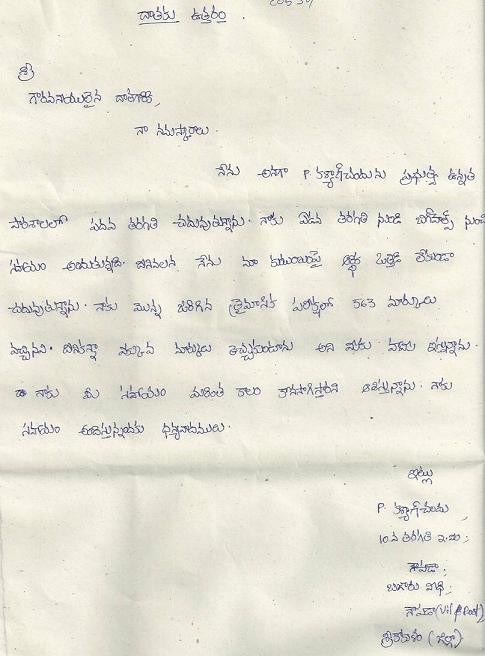 దాతకు ఉత్తరం.
శ్రీ
గౌరవనీయులైన దాతగారికి,
నా నమస్కారాలు.
నేను అనగా P. కళ్యాణ్ చందును ప్రభుత్వ ఉన్నత
పాఠశాలలో పదవ తరగతి చదువుతున్నాను. నాకు ఏడవ తరగతి నుండి నుంచి
సహాయం అందుతున్నది. దీనివలన నేను మా కుటుంబంపై ఆర్థిక ఒత్తిడి లేకుండా
చదువుతున్నాను. నాకు మొన్న జరిగిన త్రైమాసిక పరీక్షలో 563 మార్కులు
వచ్చినవి. దీనికన్నా ఎక్కువ మార్కులు తెచ్చుకుంటాను అని మీకు హామీ ఇస్తున్నాను.
నాకు మీ సహాయం మరింత కాలం కొనసాగిస్తారని ఆశిస్తున్నాను. నాకు
సహాయం అందిస్తున్నందుకు ధన్యవాదములు.
ఇట్లు
P. కళ్యాణ్ చందు,
10వ తరగతి
బంగారు వీధి,
(Vill & Post)
శ్రీకాకుళం (జిల్లా)